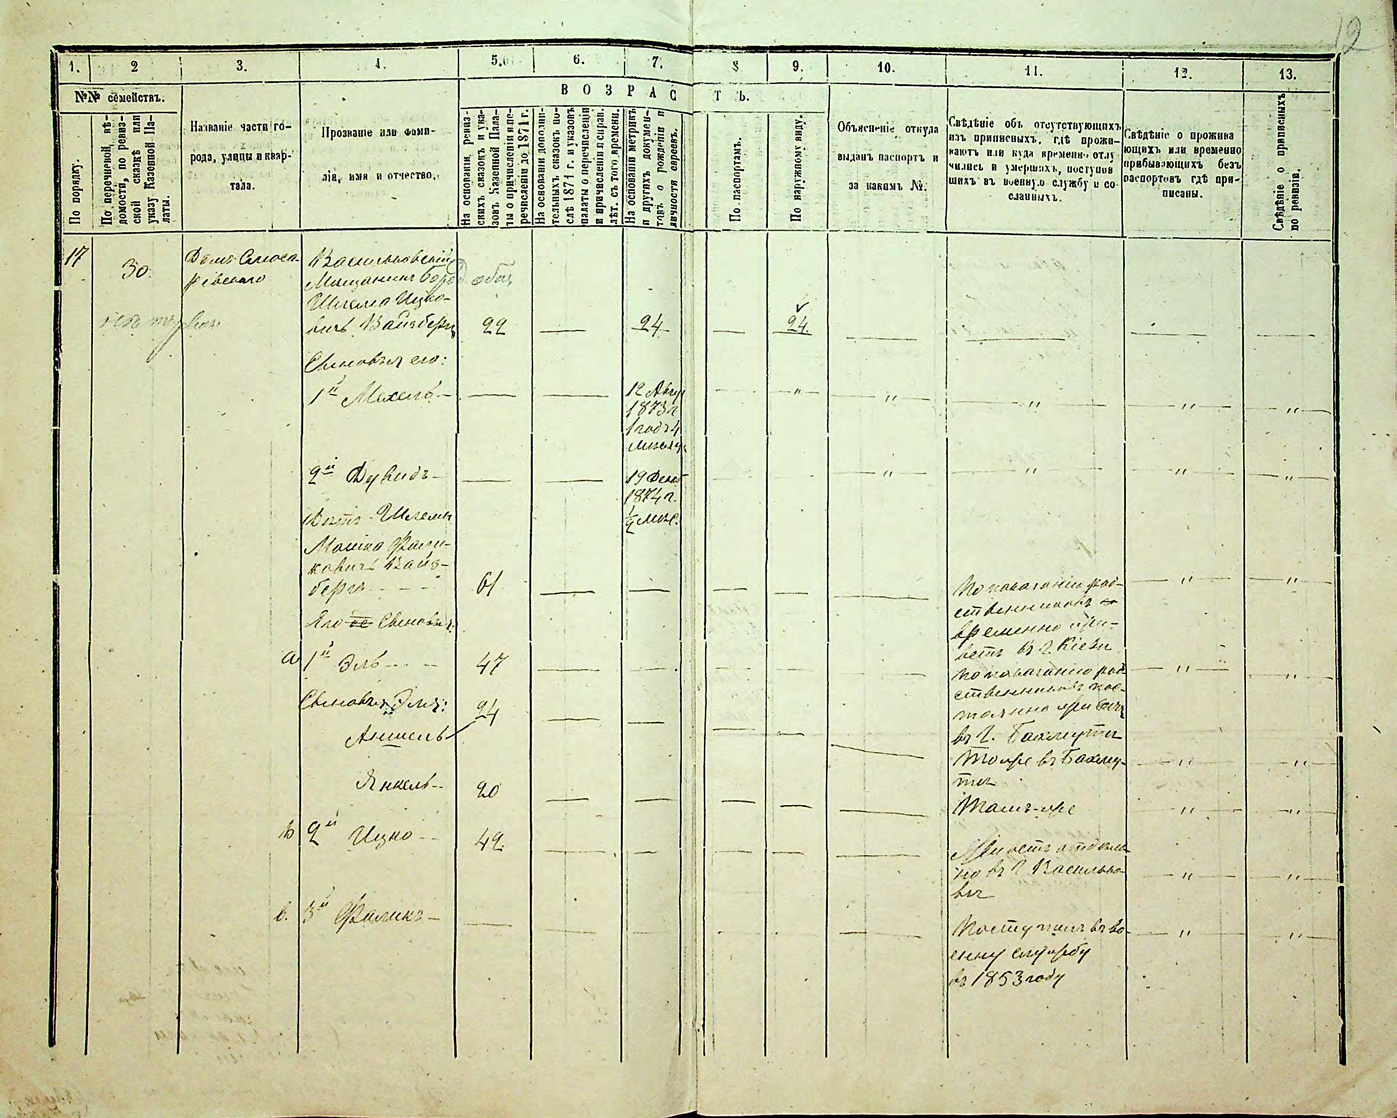 12
1. 2 3. 4. 5. 6. 7. 8 9. 10. 11. 12. 13.
№№ семействъ.
В О З Р А С Т Ъ.
По порядку.
По перечневой вѣ-
домости, по ревиз-
ской сказкѣ или
указу Казенной Па-
латы.
Названіе части го-
рода, улицы и квар-
тала.
Прозваніе или фами-
лія, имя и отчество.
На основаніи ревиз-
скихъ сказокъ и ука-
зовъ Казенной Пала-
ты о причисленіи и пе-
речисленіи до 1871 г.
На основаніи дополни-
тельныхъ сказокъ по-
слѣ 1871 г. и указовъ
палаты о перечисленіи
и причисленіи и справ.
лѣт. съ того времени.
На основаніи метрикъ
и другихъ докумен-
товъ о рожденіи и
личности евреевъ.
По паспортамъ.
По наружному виду.
Объясненіе откуда
выданъ паспортъ и
за какимъ №.
Свѣдѣніе объ отсутствующихъ
изъ приписныхъ, гдѣ прожи-
ваютъ или куда временно отлу-
чились и умершихъ, поступив-
шихъ въ военную службу и со-
сланныхъ.
Свѣдѣніе о прожива
ющихъ или временно
прибывающихъ безъ
паспортовъ гдѣ при-
писаны.
Свѣдѣніе о приписныхъ
по ревизіи.
17 30.
Васильковскій
Мѣщанинъ
Шлема Ицко-
вичъ Вайсбергъ 22 — 24 — 24. — — —
Сыновья его:
1й Мехель — — — 12 Авгу — " " " " "
1873 г
1 годъ 4
мѣсяц.
2й Дувидъ — — — 19 Декаб — " " " "
1874 г.
½ мѣс.
Шлемы
Мошко Фали-
ковичъ Вайс-
бергъ 61 — — — — — По показанію род- " "
ственниковъ
временно жи-
ветъ въ г. Кіевѣ
Его Сыновья:
а 1й Эль 47 — — — — — По показанію род " "
ственниковъ пос-
тоянно
въ г. Бахмутѣ
Сыновья Эля:
Аншель 24 — — — — — Тоже въ Бахму- " "
тѣ
Янкель 20 — — — — — Тамъ-же " "
б 2й Ицко 42. — — — — — Живетъ отдѣль- " "
но въ г. Василько-
вѣ
в. 3й Фаликъ — — — — — — Поступилъ въ во- " "
енну службу
въ 1853 году